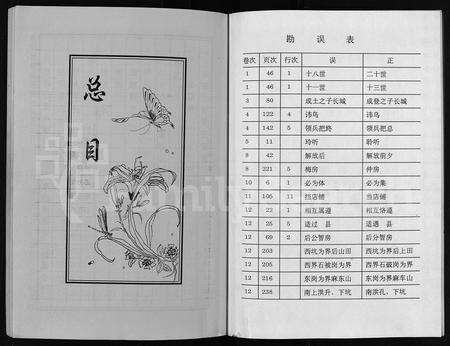 总目
勘误表
卷次 页次 行次 误 正
1 46 1 十八世 二十世
1 46 1 十一世 十三世
3 80 成土之子长城 成發之子长城
4 122 4 讳鸟 讳鸟
4 142 5 领兵把终 领兵把总
5 11 玲听 聆听
8 42 解放后 解放前夕
8 221 5 梅房 仲房
10 6 1 必为体 必为集
11 105 挡店铺 当店铺
12 22 1 相互属道 相互洛道
12 25 5 适过 县 适遇 县
12 69 2 后公智房 后分智房
12 203 西坑为界后山田 西坑为界后上田
12 205 西界石被岗为界 西界石岗为界
12 216 东岗为界麻东山 东岗为界麻车山
12 238 南上淇升、下坑 南淇孔、下坑